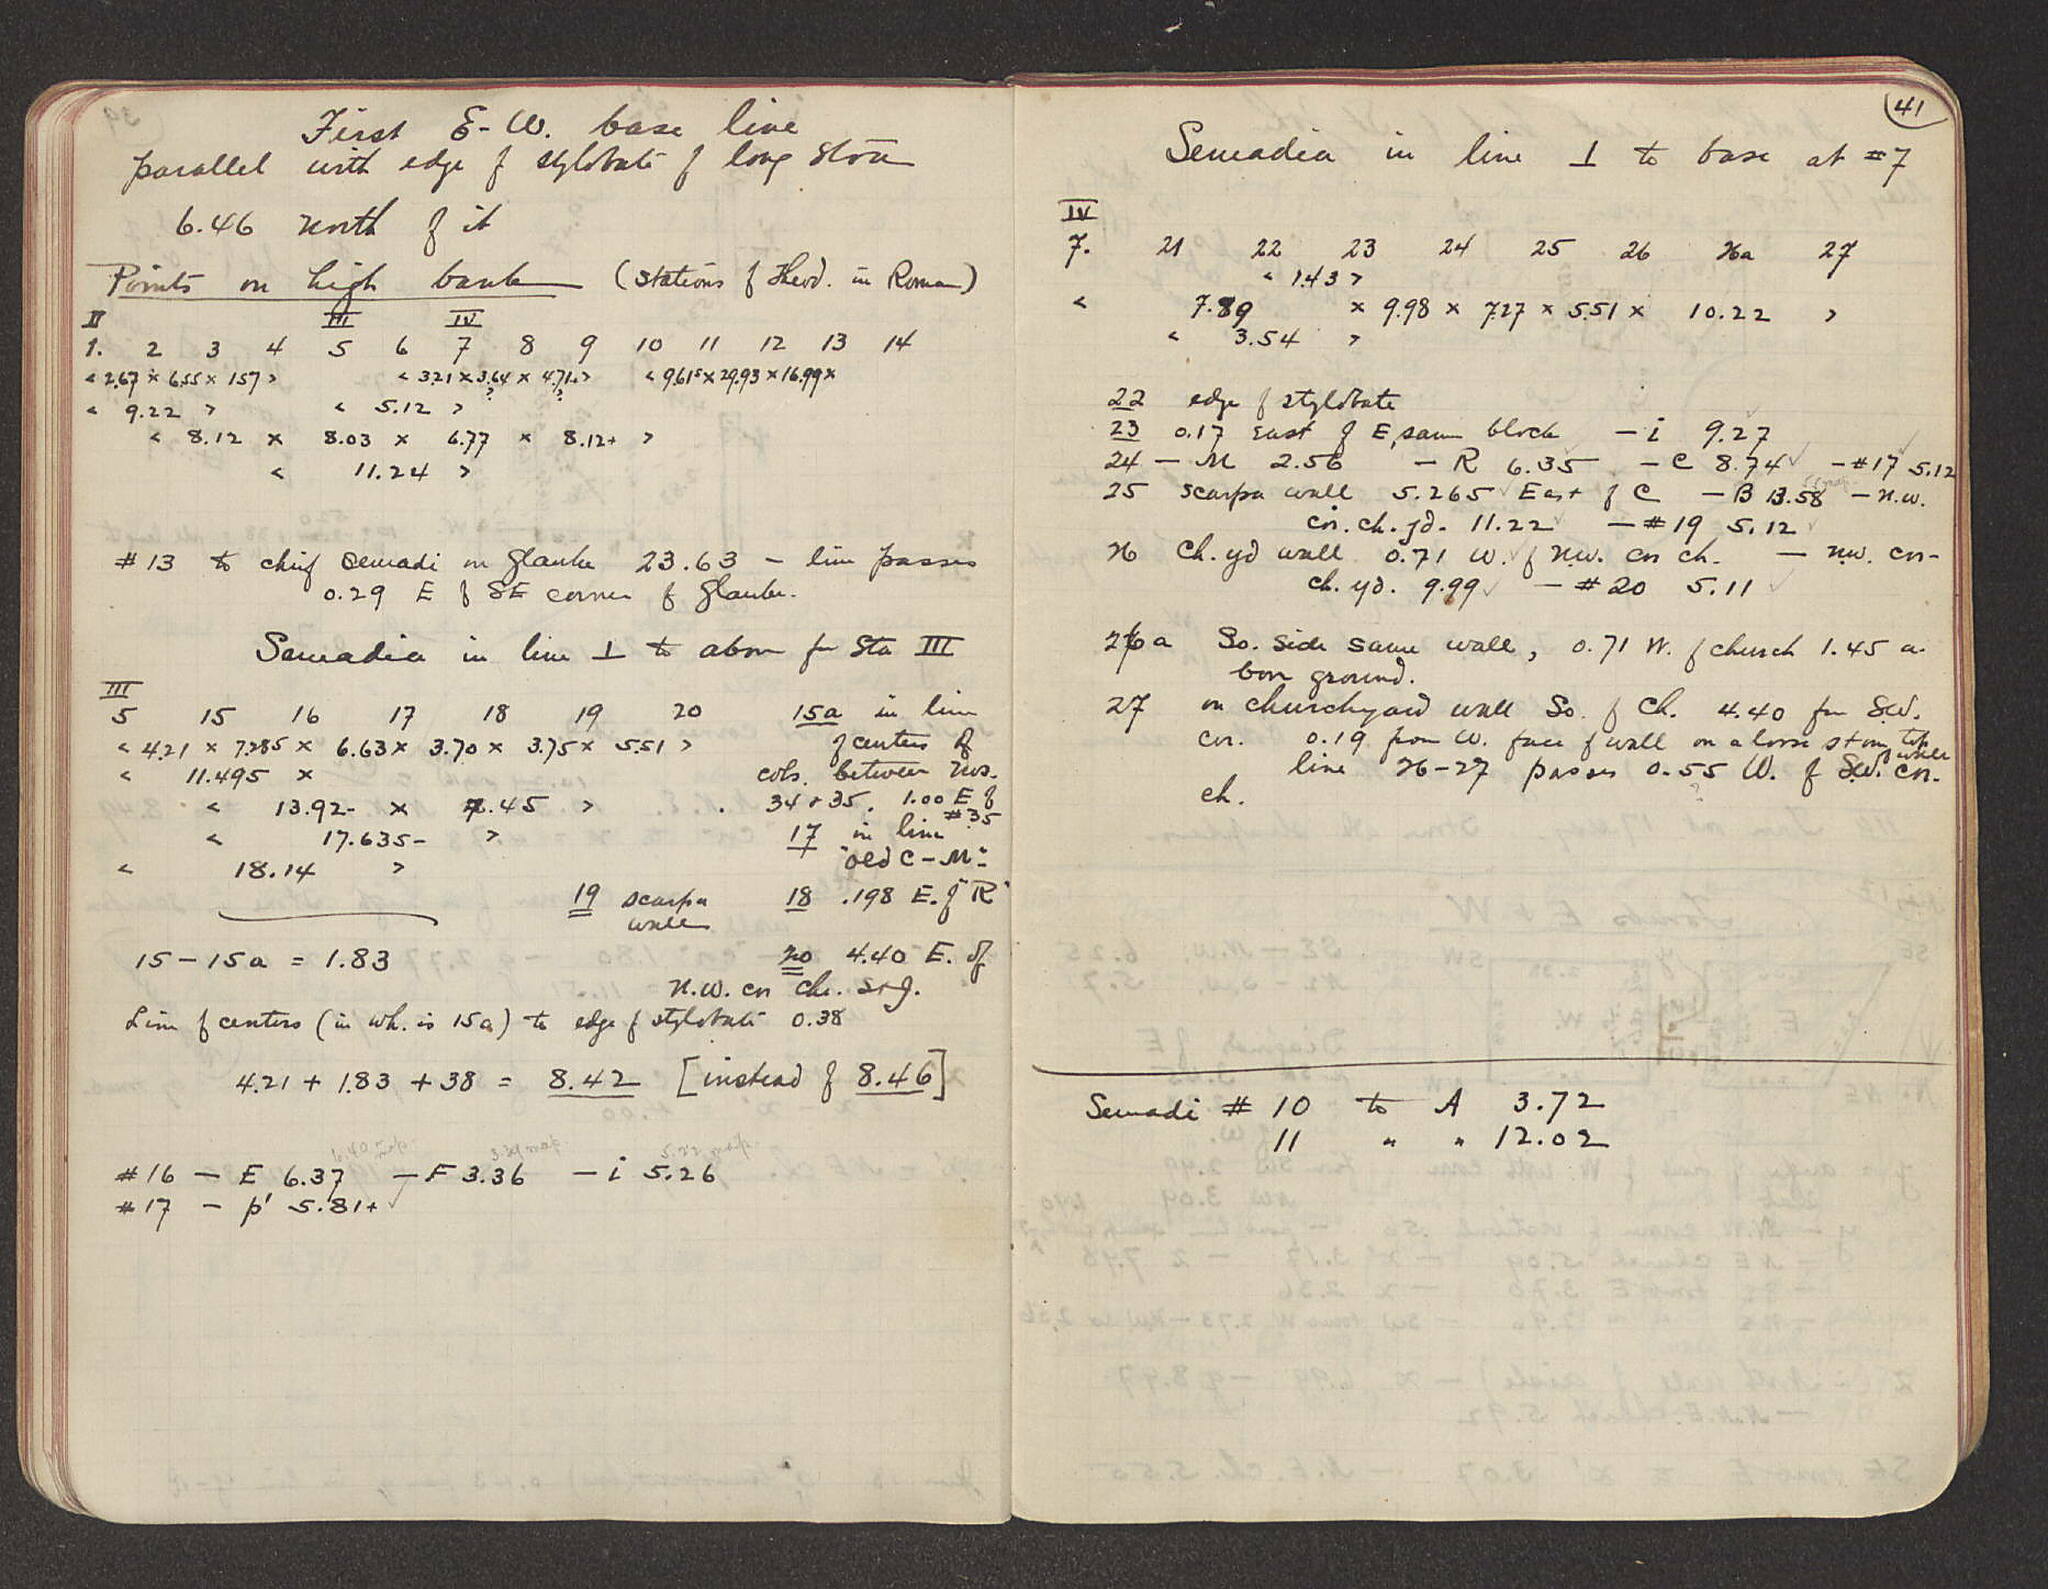 First E-W. base line
parallel with edge of stylobate of long stoa
6.46 north of it
Points on high bank (Stations of theod. in Roman)
II III IV
1. 2 3 4 5 6 7 8 9 10 11 12 13 14
< 2.67 × 6.55 × 157 > < 321 × 3.64 × 4.71 > < 961⁵ × 29.93 × 16.99 ×
? ?
< 9.22 > < 5.12 >
< 8.12 × 8.03 × 6.77 × 8.12+ >
< 11.24 >
#13 to chief semadi on Glauke 23.63 - line passes
0.29 E of SE corner of Glauke.
Semadia in line ⊥ to above for Sta III
III
5 15 16 17 18 19 20
< 4.21 × 7.285 × 6.63 × 3.70 × 3.75 × 5.51 >
< 11.495 ×
< 13.92- × 7.45 >
< 17.635- >
< 18.14 >
15a in line
of centers of
cols. between nos.
34 + 35. 1.00 E of
#35
17 in line
"old C - M"
19 scarpa
wall
18 .198 E. of "R"
15 - 15a = 1.83
20 4.40 E. of
N.W. cor ch.
Line of centers (in wh. is 15a) to edge of stylobate 0.38
4.21 + 1.83 + 38 = 8.42 [instead of 8.46]
6.40 map 3.39 map 5.22 map
#16 - E 6.37 - F 3.36 - i 5.26
#17 - p' 5.81+ ✓
41
Semadia in line ⊥ to base at #7
IV
7. 21 22 23 24 25 26 26a 27
< 1.43 >
< 7.89 × 9.98 × 7.27 × 5.51 × 10.22 >
< 3.54 >
22 edge of stylobate
23 0.17 East of E, same block - i 9.27
24 - M 2.56 - R 6.35 - C 8.74 ✓ - #17 5.12
25 scarpa wall 5.265 ✓ East of C - B 13.58 - N.W.
cor. ch. yd. 11.22 ✓ - #19 5.12 ✓
26 Ch. yd wall 0.71 W. of N.W. cor ch. - N.W. cor-
ch. yd. 9.99 ✓ - #20 5.11 ✓
26a So. side same wall, 0.71 W. of church 1.45 a-
bove ground.
27 on churchyard wall So. of Ch. 4.40 from S.W.
cor. 0.19 from W. face of wall on a loose stone, top
of wall
line 26-27 passes 0.55 W. of S.W. cor.
ch. ?
Semadi # 10 to A 3.72
11 " " 12.02